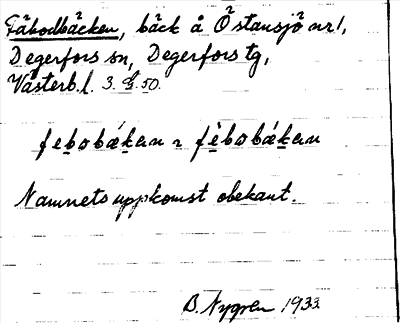 Fäbodbäcken, bäck å Östansjö nr 1,
Degerfors sn, Degerfors tg,
Västerb. l. 3. G. 50.
febobäken r fèbobäken
Namnets uppkomst obekant.
B. Nygren 1933